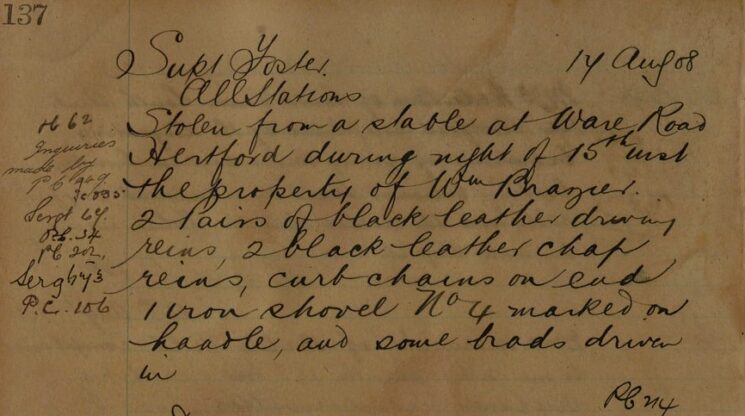 137
Supt Foster.
17 Aug 08
All Stations
Stolen from a stable at Ware Road
Hertford during night of 15th inst
the property of Wm Brazier.
2 Pairs of black leather driving
reins, 2 black leather chap
reins, curb chains on end
1 iron shovel No 4 marked on
haadle, and some brads driven
in
H 62
Inquiries
made by
PC 249
Sergt 64.
PC. 54
PC 202,
Serg
P.C. 106